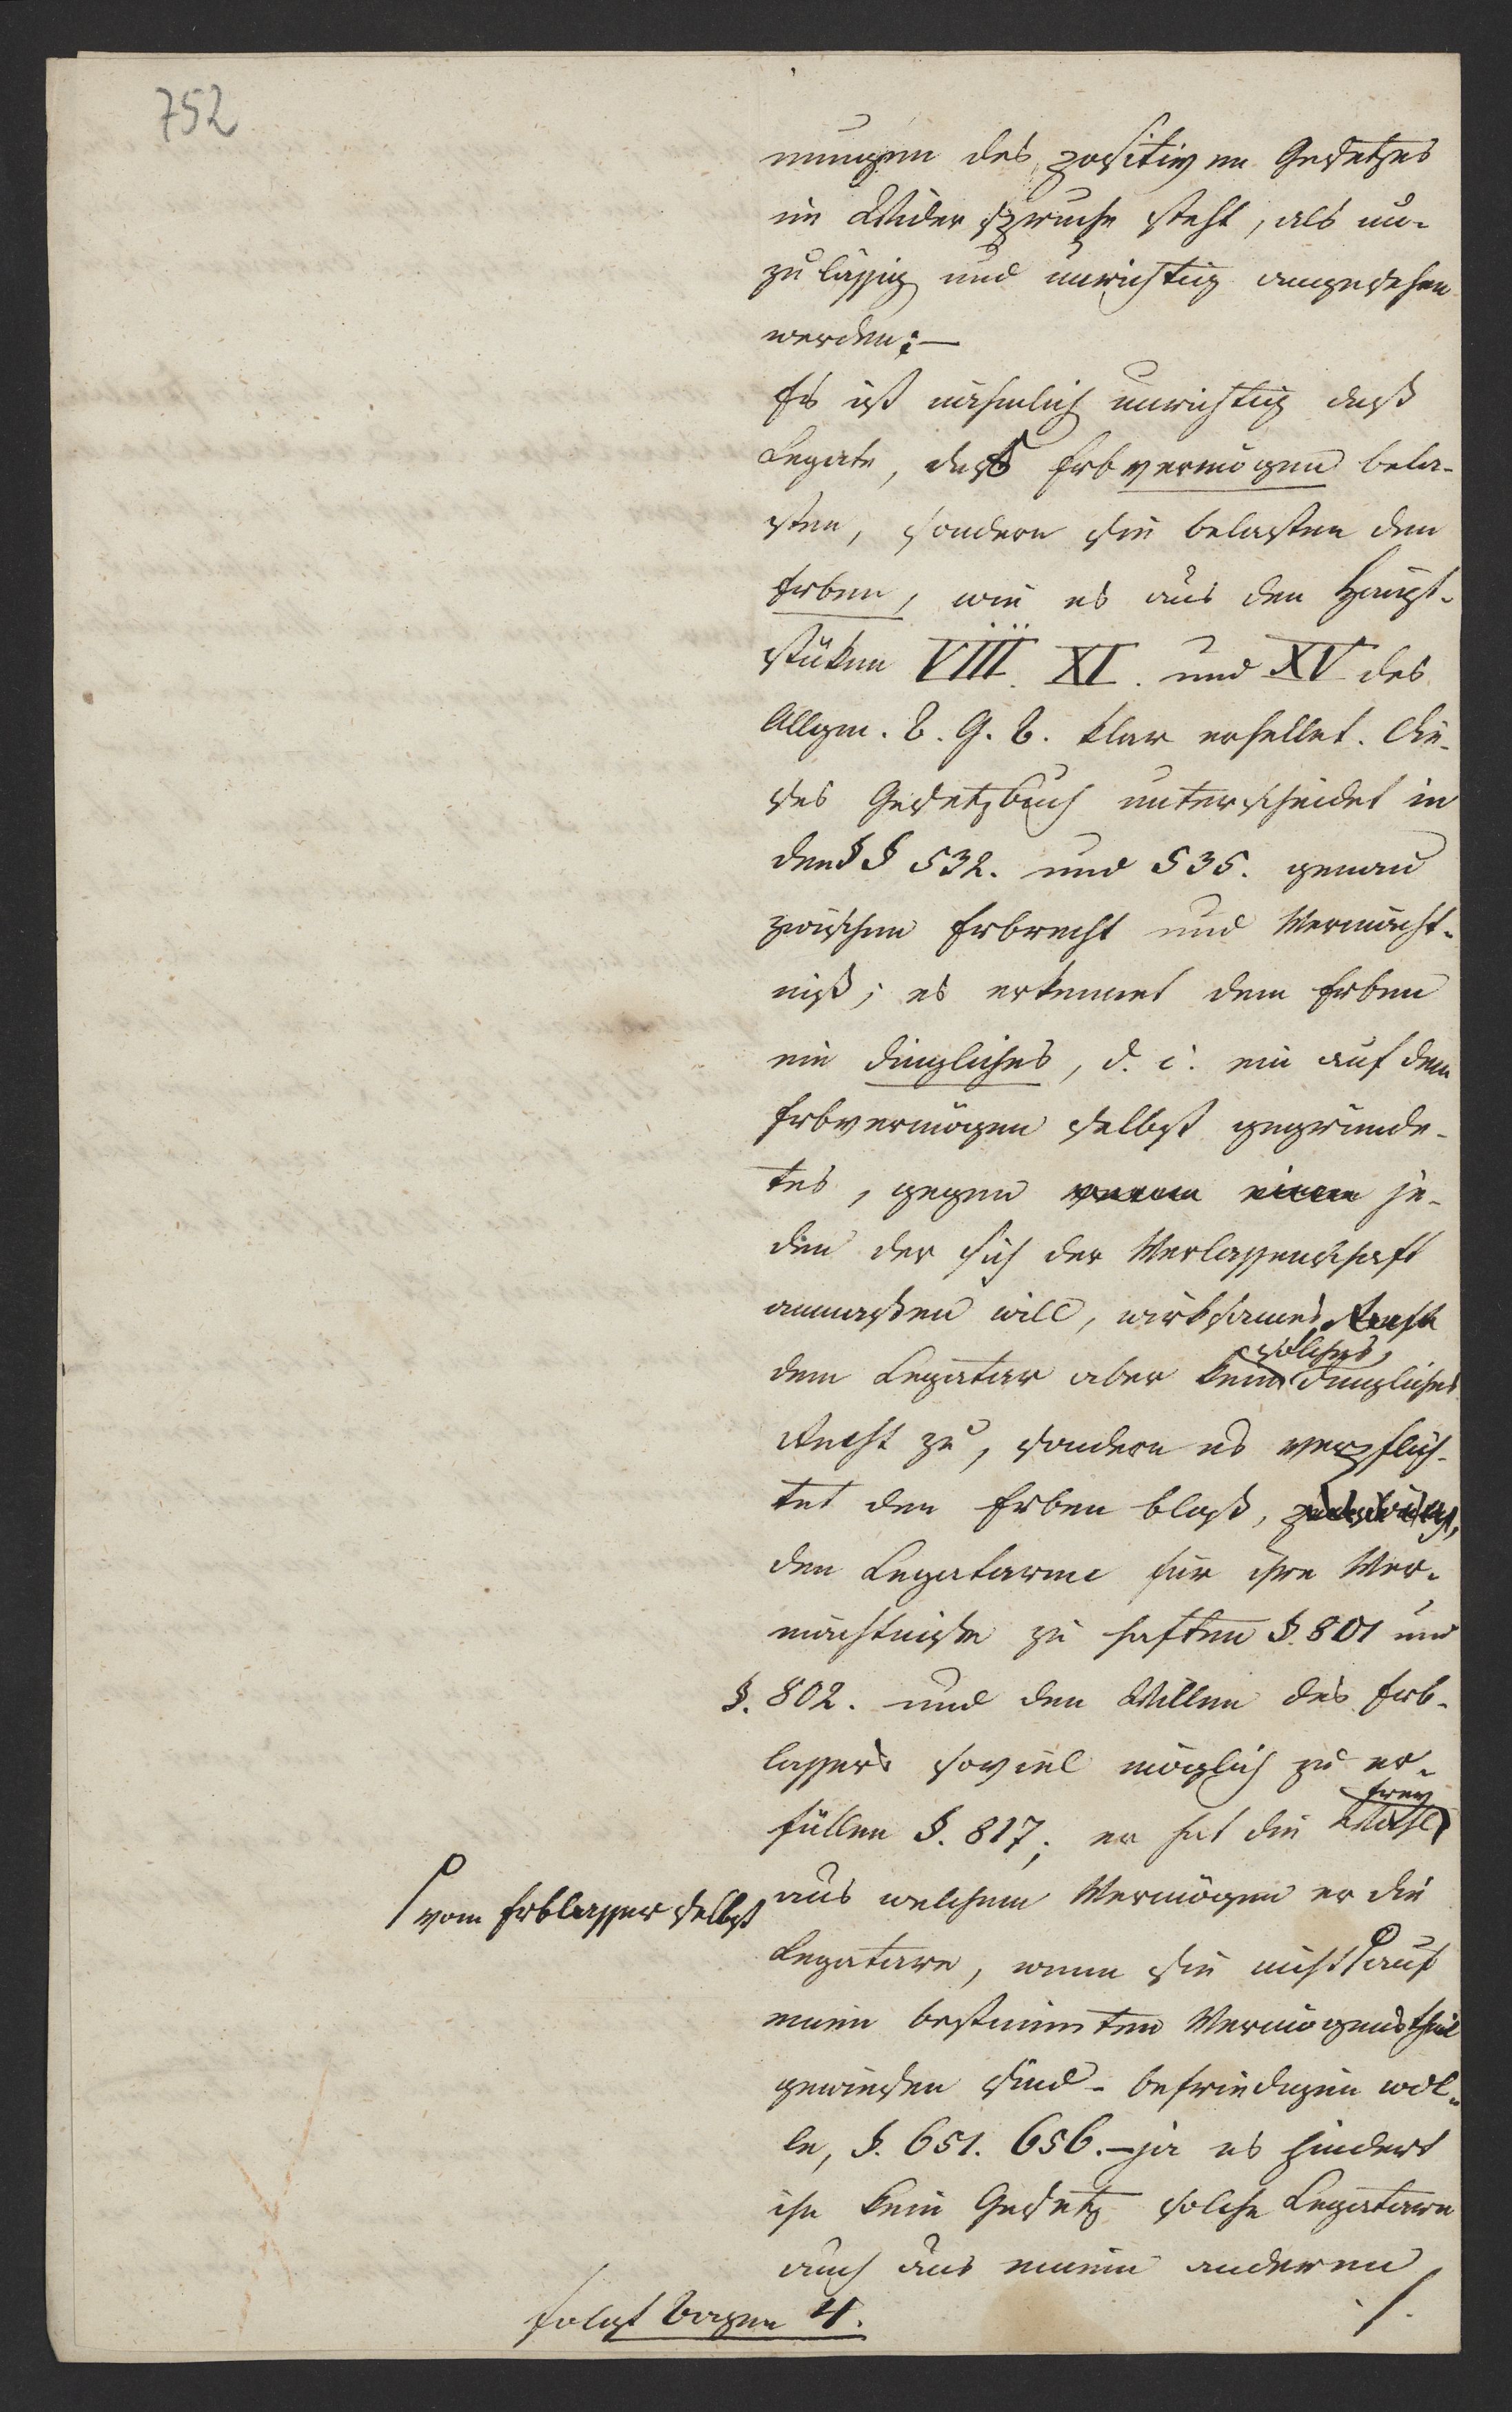 752
nungen des positiven Gesetzes
im Widerspruche steht, als un-
zulässig und unrichtig angesehen
werden: —
Es ist nähmlich unrichtig daß
Legate, das Erbvermögen bela-
sten, sondern sie belasten den
Erben, wie es aus den Haupt-
stüken VIII. XI. und XV des
Allgm. B. G. B. klar erhellet. Die-
ses Gesetzbuch unterscheidet in
den §§ 532. und 535. genau
zwischen Erbrecht und Vermächt-
niß; es erkennet dem Erben
ein dingliches, d. i. ein auf dem
Erbvermögen selbst gegründe-
tes, gegen einen je-
den der sich der Verlassenschaft
anmaßen will, wirksames Recht
solches
dem Legatar aber kein dingliches
Recht zu, sondern es verpflich-
tet den Erben bloß,
den Legataren für ihre Ver-
mächtniße zu haften §. 801 und
§. 802. und den Willen des Erb-
lassers soviel möglich zu er-
frey
füllen §. 817; er hat die Wahl
aus welchem Vermögen er die
vom Erblasser selbst
Legatare, wenn sie nicht auf
einen bestimmten Vermögenstheil
gewiesen sind - befriedigen wol-
le, §. 651. 656. - ja es hindert
ihn kein Gesetz solche Legatare
auch aus einem anderen
folgt Bogen 4. ./.